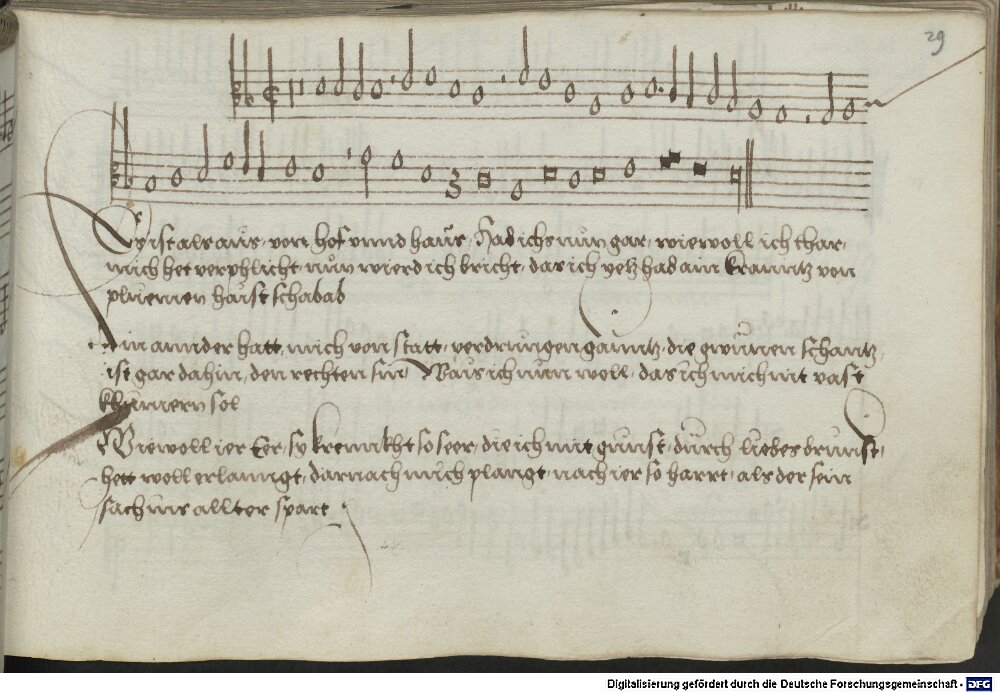 29
Es ist als aus, von hof unnd haus, Had ichs nun gar, wiewoll ich thar,
mich het verphlicht, nun wierd ich bricht, das ich yetz hab ain kranntz von
pluemen haist schabab
Ain annder hatt, mich von statt, verdrungen ganntz, die gwunen schantz,
ist gar dahin, den rechten sin, Wais ich nun woll, das ich mich nit vast
khumern sol
Wiewoll ier Eer, sy krennckht so seer, die ich mit gunst, durch liebes brunst,
hett woll erlanngt, darnach mich plangt, nach ier so harrt, als der sein
sach ins allter spart
Digitalisierung gefördert durch die Deutsche Forschungsgemeinschaft - DFG